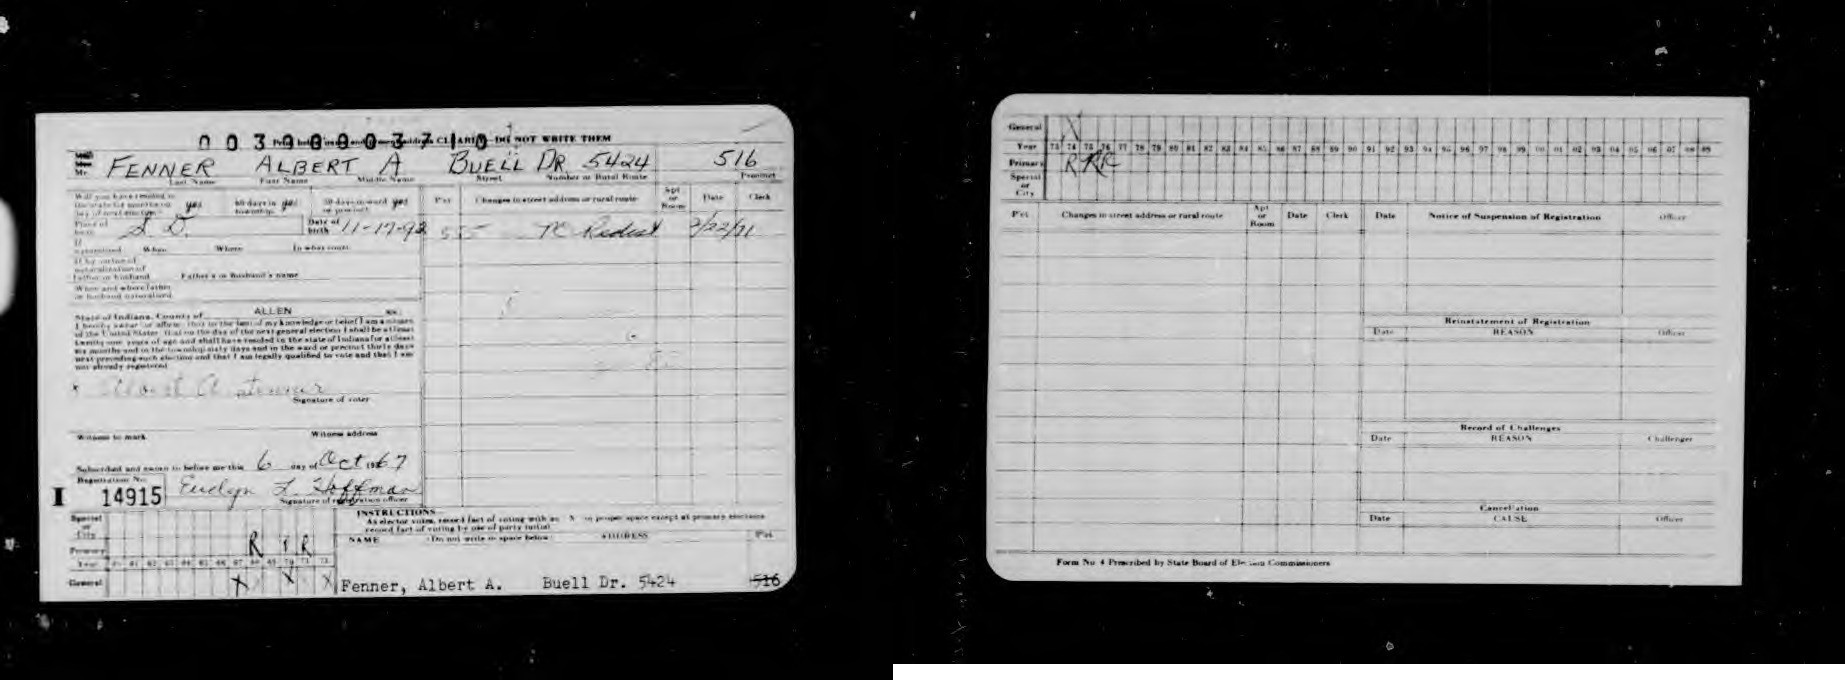 00300003710
Print below name and address CLEARLY—DO NOT WRITE THEM
FENNER ALBERT A BUELL DR 5424 516
Last Name First Name Middle Name Street Number or Rural Route Precinct
Will you have resided in the state six months on day of next election yes 60 days in township yes 30 days in ward or precinct yes
Pct Changes in street address or rural route Apt or Room Date Clerk
Place of birth S. D. Date of birth 11-17-92
555 TC Redist 3/22/71
If naturalized When Where In what court
If by virtue of naturalization of Father or husband Father's or husband's name
When and where father or husband naturalized
State of Indiana, County of ALLEN ss:
I hereby swear (or affirm) that to the best of my knowledge or belief I am a citizen
of the United States, that on the day of the next general election I shall be at least
twenty-one years of age and shall have resided in the state of Indiana for at least
six months and in the township sixty days and in the ward or precinct thirty days
next preceding such election and that I am legally qualified to vote and that I am
not already registered
x Albert A Fenner
Signature of voter
Witness to mark Witness address
Subscribed and sworn to before me this 6 day of Oct 1967
Registration No.
I 14915 Evelyn L. Hoffman
Signature of registration officer
INSTRUCTIONS
As elector votes, record fact of voting with an X in proper space except at primary elections
record fact of voting by use of party initial
Special or City
NAME (Do not write in space below) ADDRESS Pct
Primary R R
Year 60 61 62 63 64 65 66 67 68 69 70 71 72
General X X X X
Fenner, Albert A. Buell Dr. 5424 516
General X
Year 73 74 75 76 77 78 79 80 81 82 83 84 85 86 87 88 89 90 91 92 93 94 95 96 97 98 99 00 01 02 03 04 05 06 07 08 09
Primary R R R
Special or City
Pct Changes in street address or rural route Apt or Room Date Clerk Date Notice of Suspension of Registration Officer
Reinstatement of Registration
Date REASON Officer
Record of Challenges
Date REASON Challenger
Cancellation
Date CAUSE Officer
Form No 4 Prescribed by State Board of Election Commissioners